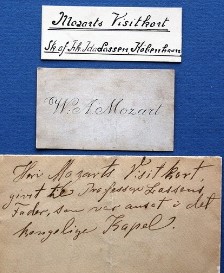 Mozarts Visitkort
Sk. af Frk. Ida Lassen København
W. A. Mozart
Herr Mozarts Visitkort,
givet til Professor Lassens
Fader, som var ansat i det
kongelige Kapel.